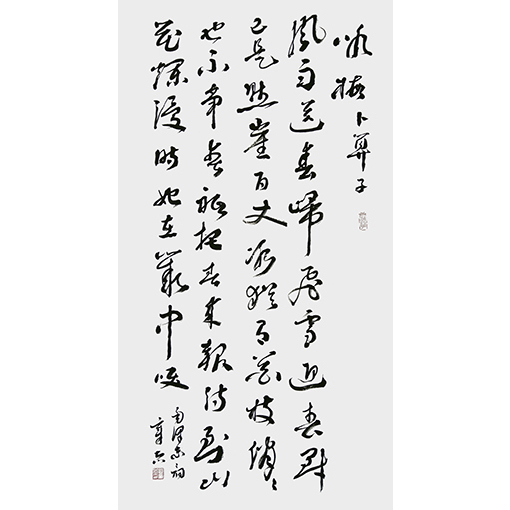 咏梅卜算子
風雨送春歸飛雪迎春到
已是懸崖百丈冰猶有花枝俏〻
也不争春祗把春来報待到山
花爛漫時她在叢中笑
毛澤東詞